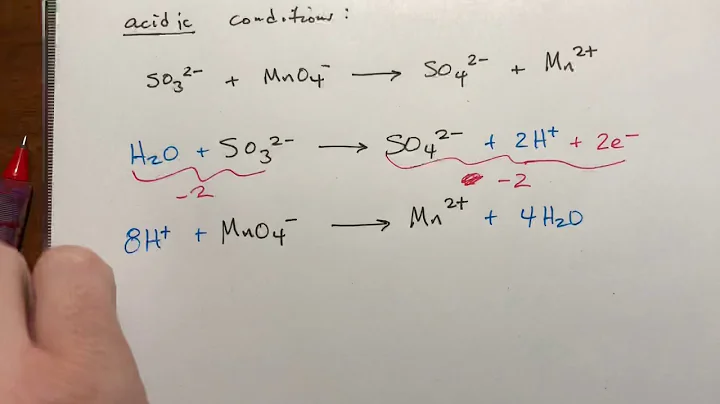 acidic conditions:
SO₃²⁻ + MnO₄⁻ → SO₄²⁻ + Mn²⁺
H₂O + SO₃²⁻ → SO₄²⁻ + 2H⁺ + 2e⁻
-2 -2
8H⁺ + MnO₄⁻ → Mn²⁺ + 4H₂O